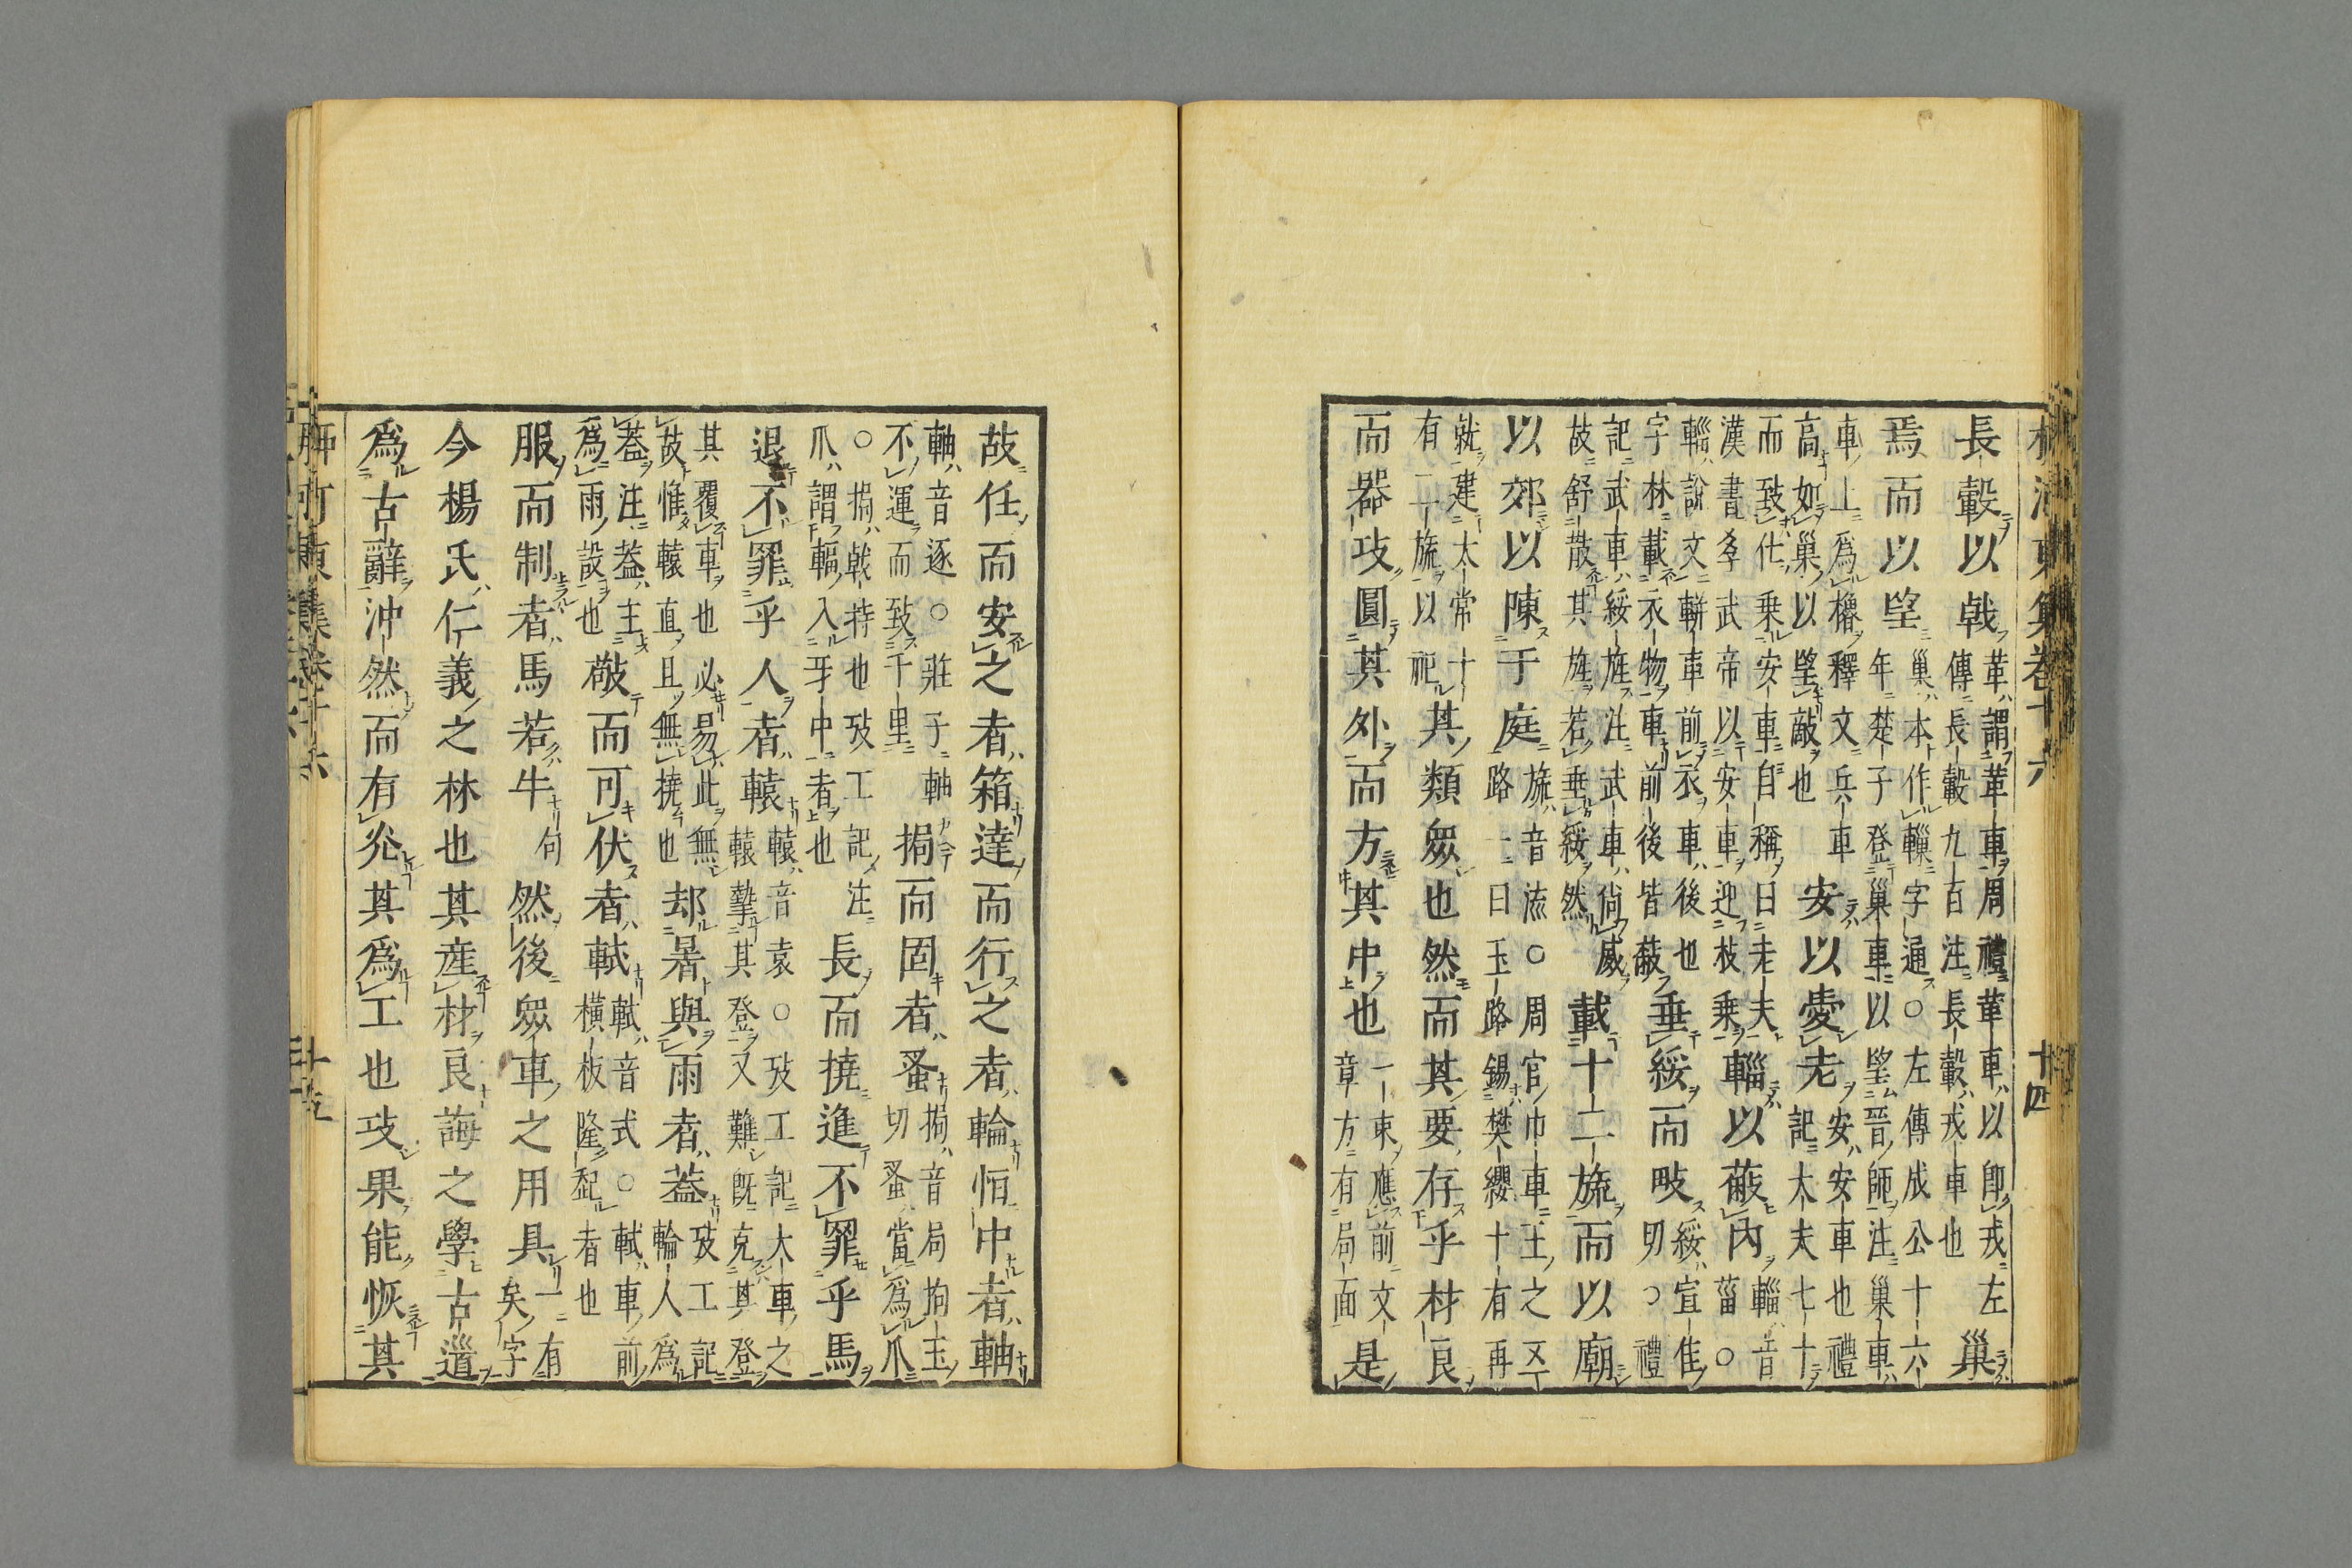 柳河東集卷十六 十四
長轂以戟革謂革車周禮革車以即戎左
傳長轂九百注長轂戎車也巢
焉而以望巢本作轈字通○左傳成公十六
年楚子登巢車以望晉師注巢車
車上爲櫓釋文兵車
高如巢以望敵也安以愛老安安車也禮
記大夫七十
而致仕乗安車自稱曰老夫
漢書孝武帝以安車迎枚乗輜以蔽內輜音
菑○
輜說文軿車前衣車後也
字林載衣物車前後皆蔽垂綏而畋綏宣隹
切○禮
記武車綏旌注武車尚威
故舒散其旌若垂綏然載十二旒而以廟
以郊以陳于庭旒音流○周官巾車王之五
路一曰玉路錫樊纓十有再
就建太常十
有二旒以祀其類衆也然而其要存乎材良
而器攻圓其外而方其中也一束應前文
章方有局面是
故任而安之者箱達而行之者輪恒中者軸
軸音逐○莊子軸
不運而致千里挶而固者蚤挶音局拘玉
切蚤當爲爪
○挶戟持也攷工記注
爪謂輻入牙中者也長而撓進不罪乎馬
退不罪乎人者轅轅音袁○攷工記大車之
轅摯其登又難既克其登
其覆車也必易此無
故惟轅直且無撓也却暑與雨者蓋攷工記
輪人爲
蓋注蓋主
爲雨設也敬而可伏者軾軾音式○軾車前
橫板隆起者也
服而制者馬若牛句然後衆車之用具一有
矣字
今楊氏仁義之林也其産材良誨之學古道
爲古辭沖然而有光其爲工也攻果能恢其